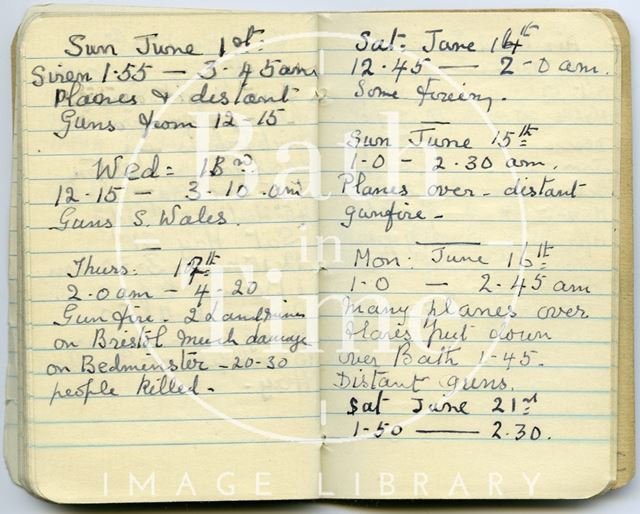 Sun June 1st.
Siren 1.55 — 3.45am
Planes & distant
Guns from 12-15
Wed=
12.15 — 3.10.am
Guns S. Wales.
Thurs:
2.0am - 4-20
Gunfire. 2 Landmines
on Bristol much damage
on Bedminster - 20-30
people killed.
Sat. June 14th
12.45 — 2-0 am.
Some fireing.
Sun June 15th
1-0 - 2.30 am.
Planes over - distant
gunfire -
Mon: June 16th
1-0 — 2.45 am
Many planes over
flares put down
over Bath 1-45.
Distant guns.
Sat June 21st
1-50 — 2.30.
Bath
in
Time
IMAGE LIBRARY